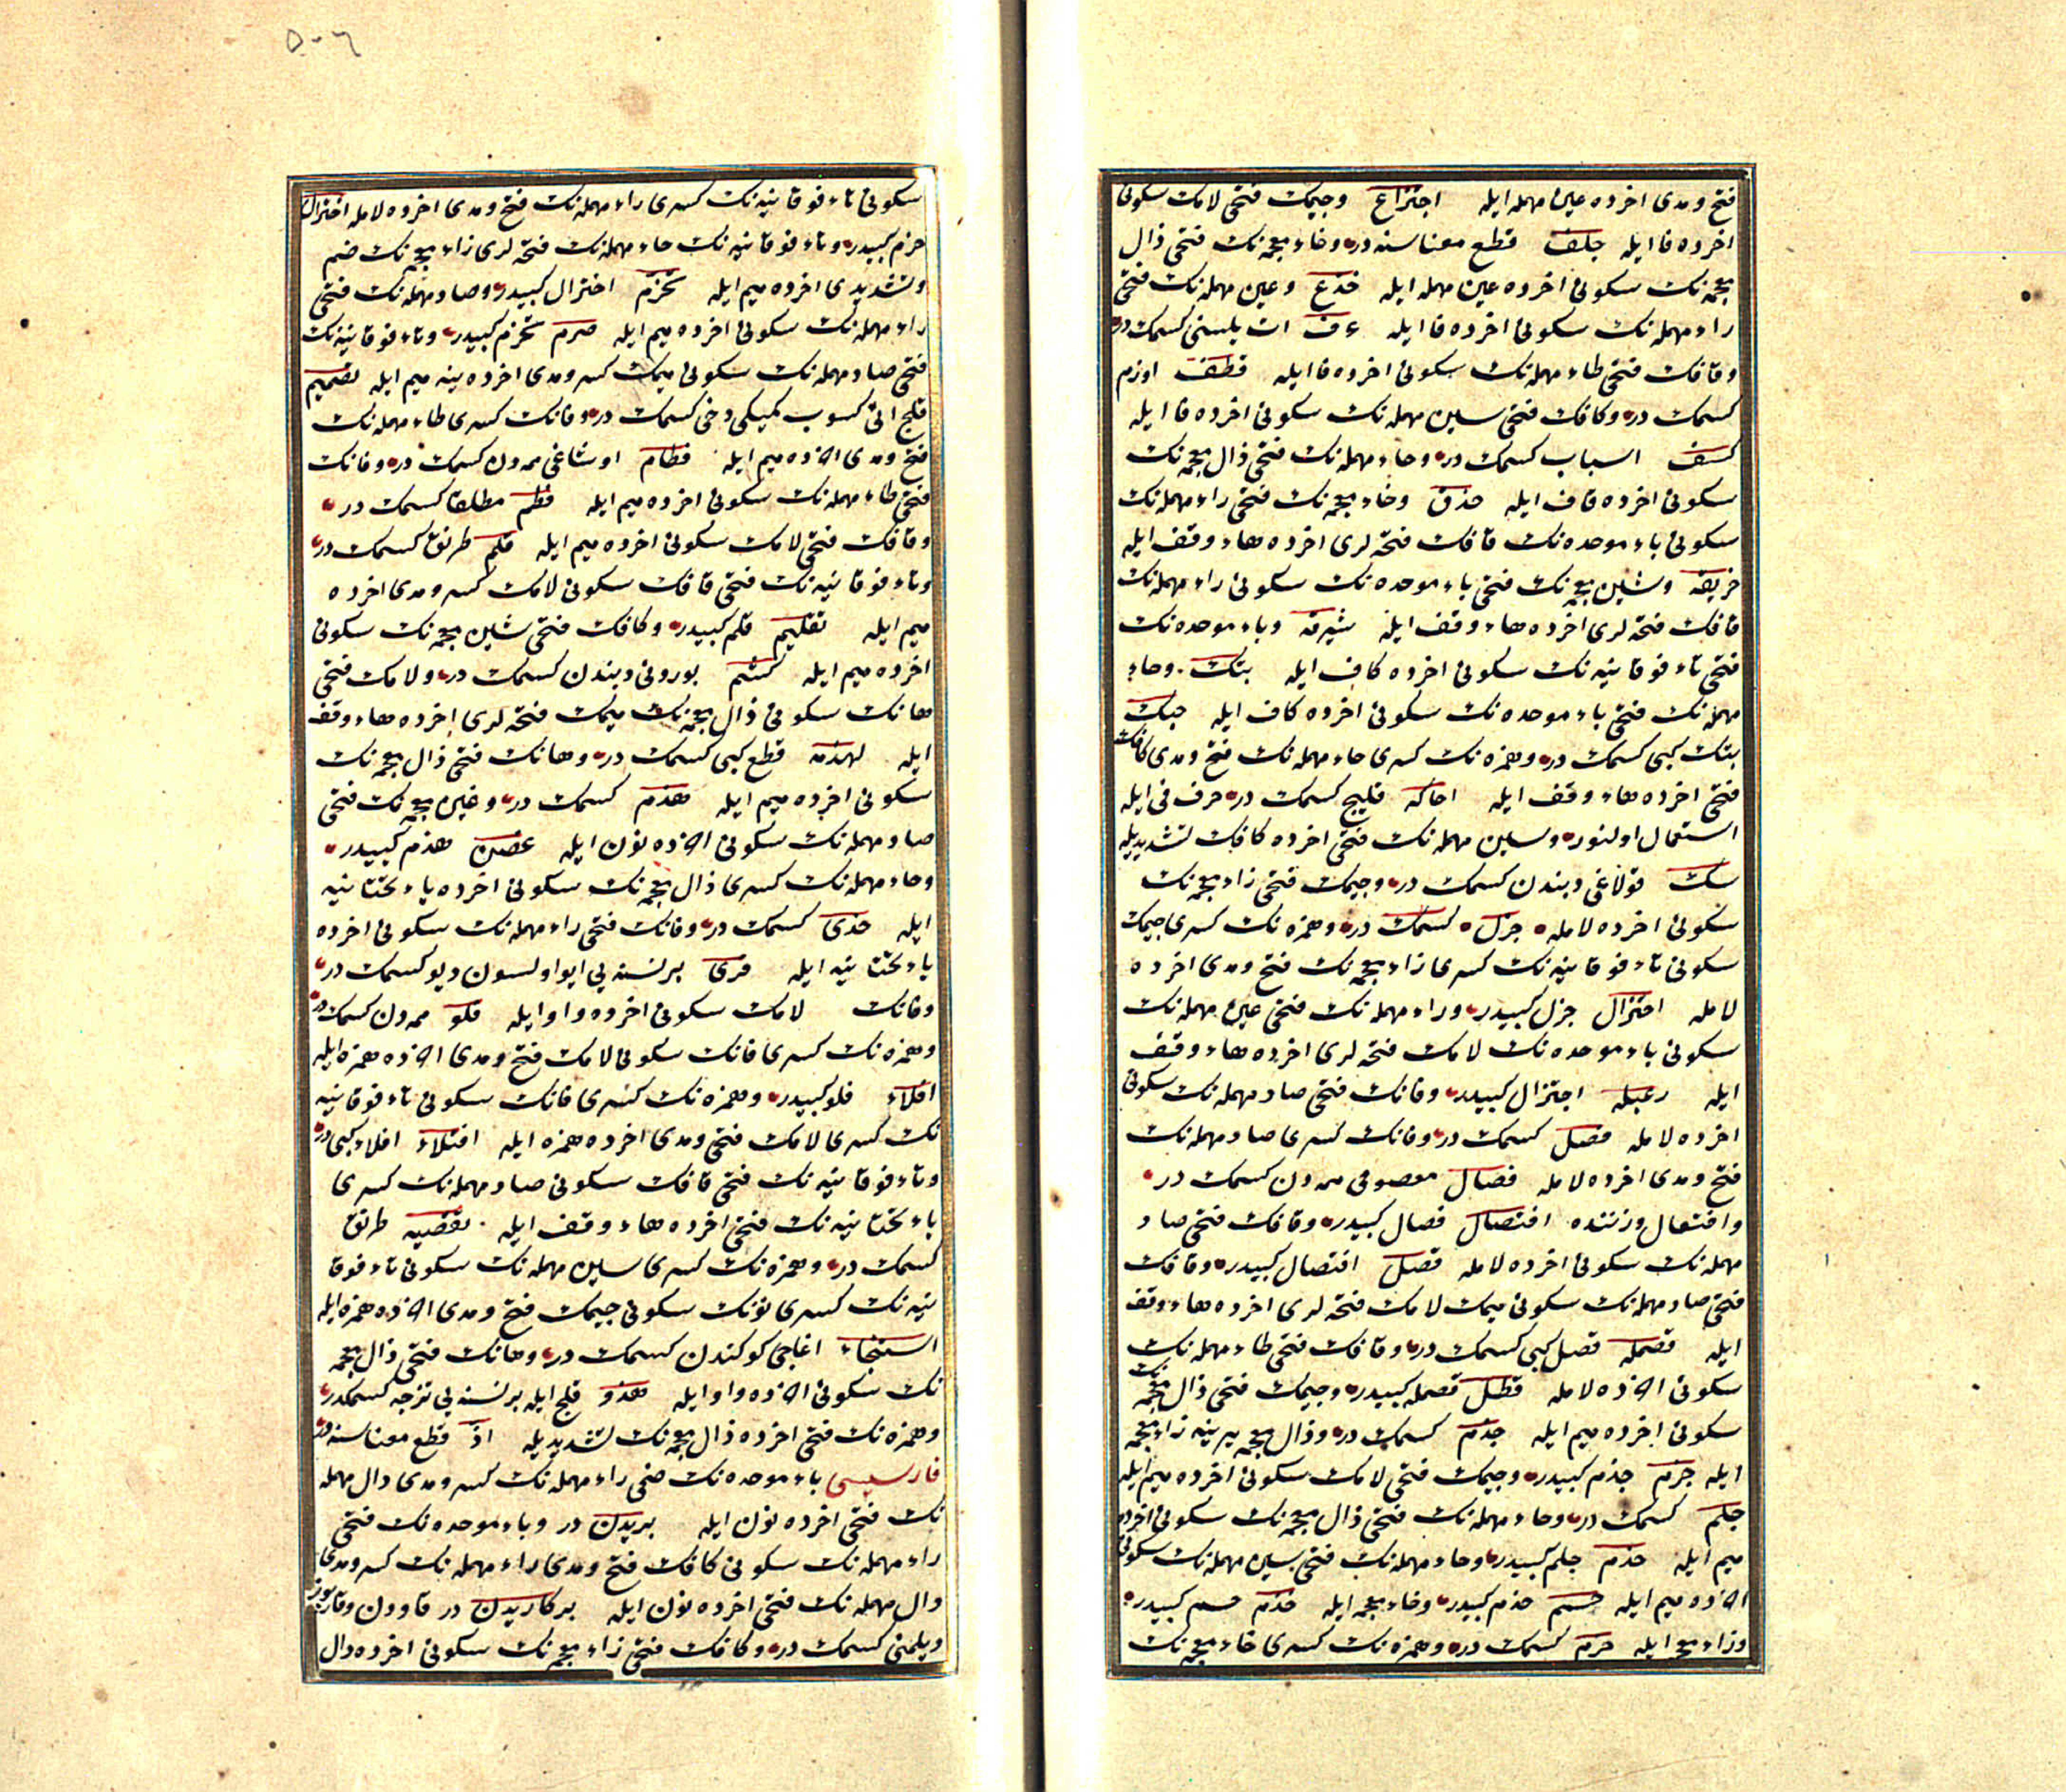 فتح و مدی اخرده عین مهمله ایله اجتزاع و جیمک فتحی لامک سکونی
اخرده فا ایله جلف قطع معناسنه در و خاء معجمه نک فتحی ذال
معجمه نک سکونی اخرده عین مهمله ایله خذع و عین مهمله نک فتحی
راء مهمله نک سکونی اخرده فا ایله عرف ات یلسنی کسمک در
و قافک فتحی طاء مهمله نک سکونی اخرده فا ایله قطف اوزم
کسمک در و کافک فتحی سین مهمله نک سکونی اخرده فا ایله
کسف اسباب کسمک در و حاء مهمله نک فتحی ذال معجمه نک
سکونی اخرده قاف ایله حذق و خاء معجمه نک فتحی راء مهمله نک
سکونی باء موحده نک قافک فتحه لری اخرده هاء وقف ایله
خربقه و شین معجمه نک فتحی باء موحده نک سکونی راء مهمله نک
قافک فتحه لری اخرده هاء وقف ایله شبرقه و باء موحده نک
فتحی تاء فوقانیه نک سکونی اخرده کاف ایله بتک و حاء
مهمله نک فتحی باء موحده نک سکونی اخرده کاف ایله حبک
بتک کبی کسمک در و همزه نک کسری حاء مهمله نک فتح و مدی کافک
فتحی اخرده هاء وقف ایله احاکه قلیج کسمک در حرف فی ایله
استعمال اولنور و سین مهمله نک فتحی اخرده کافک تشدیدیله
سک قولاغی دبندن کسمک در و جیمک فتحی زاء معجمه نک
سکونی اخرده لامله جزل کسمک در و همزه نک کسری جیمک
سکونی تاء فوقانیه نک کسری زاء معجمه نک فتح و مدی اخرده
لامله اجتزال جزل کبیدر و راء مهمله نک فتحی عین مهمله نک
سکونی باء موحده نک لامک فتحه لری اخرده هاء وقف
ایله رعبله اجتزال کبیدر و فانک فتحی صاد مهمله نک سکونی
اخرده لامله فصل کسمک در و فانک کسری صاد مهمله نک
فتح و مدی اخرده لامله فصال معصومی ممه دن کسمک در
و افتعال وزننده افتصال فصال کبیدر و قافک فتحی صاد
مهمله نک سکونی اخرده لامله قصل افتصال کبیدر و قافک
فتحی صاد مهمله نک سکونی میمک لامک فتحه لری اخرده هاء وقف
ایله قصمله قصل کبی کسمک در و قافک فتحی طاء مهمله نک
سکونی اخرده لامله قطل قصمله کبیدر و جیمک فتحی ذال معجمه نک
سکونی اخرده میم ایله جذم کسمک در و ذال معجمه یرینه زاء معجمه
ایله جزم جذم کبیدر و جیمک فتحی لامک سکونی اخرده میم ایله
جلم کسمک در و حاء مهمله نک فتحی ذال معجمه نک سکونی اخرده
میم ایله حذم جلم کبیدر و حاء مهمله نک فتحی سین مهمله نک سکونی
اخرده میم ایله حسم حذم کبیدر و خاء معجمه ایله خذم حسم کبیدر
و زاء معجمه ایله خزم کسمک در و همزه نک کسری خاء معجمه نک
۵۰۶
سکونی تاء فوقانیه نک کسری راء مهمله نک فتح و مدی اخرده لامله اختزال
خزم کبیدر و تاء فوقانیه نک حاء مهمله نک فتحه لری زاء معجمه نک ضم
و تشدیدی اخرده میم ایله تحزم اختزال کبیدر و صاد مهمله نک فتحی
راء مهمله نک سکونی اخرده میم ایله صرم تحزم کبیدر و تاء فوقانیه نک
فتحی صاد مهمله نک سکونی میمک کسر و مدی اخرده ینه میم ایله تصمیم
قلج اتی کسوب کمیکی دخی کسمک در و فانک کسری طاء مهمله نک
فتح و مدی اخرده میم ایله فطام اوشاغی ممه دن کسمک در و فانک
فتحی طاء مهمله نک سکونی اخرده میم ایله فطم مطلقا کسمک در
و قافک فتحی لامک سکونی اخرده میم ایله قلم طرنق کسمک در
و تاء فوقانیه نک فتحی قافک سکونی لامک کسر و مدی اخرده
میم ایله تقلیم قلم کبیدر و کافک فتحی شین معجمه نک سکونی
اخرده میم ایله کشم بورونی دبندن کسمک در و لامک فتحی
هانک سکونی ذال معجمه نک میمک فتحه لری اخرده هاء وقف
ایله لهذمه قطع کبی کسمک در و هانک فتحی ذال معجمه نک
سکونی اخرده میم ایله هذم کسمک در و غین معجمه نک فتحی
صاد مهمله نک سکونی اخرده نون ایله غصن هذم کبیدر
و حاء مهمله نک کسری ذال معجمه نک سکونی اخرده یاء تحتانیه
ایله حذی کسمک در و فانک فتحی راء مهمله نک سکونی اخرده
یاء تحتانیه ایله فری برنسنه یی ایو اولسون دیو کسمک در
و فانک لامک سکونی اخرده واو ایله فلو ممه دن کسمک در
و همزه نک کسری فانک سکونی لامک فتح و مدی اخرده همزه ایله
افلاء فلو کبیدر و همزه نک کسری فانک سکونی تاء فوقانیه
نک کسری لامک فتحی و مدی اخرده همزه ایله افتلاء افلاء کبی در
و تاء فوقانیه نک فتحی قافک سکونی صاد مهمله نک کسری
یاء تحتانیه نک فتحی اخرده هاء وقف ایله تقصیه طرنق
کسمک در و همزه نک کسری سین مهمله نک سکونی تاء فوقا
نیه نک کسری نونک سکونی جیمک فتح و مدی اخرده همزه ایله
استنجاء اغاجی کوکندن کسمک در و هانک فتحی ذال معجمه
نک سکونی اخرده واو ایله هذو قلج ایله برنسنه یی تزجه کسمکدر
و همزه نک فتحی اخرده ذال معجمه نک تشدیدیله اذ قطع معناسنه در
فارسیسی باء موحده نک ضمی راء مهمله نک کسر و مدی دال مهمله
نک فتحی اخرده نون ایله بریدن در و باء موحده نک فتحی
راء مهمله نک سکونی کافک فتح و مدی راء مهمله نک کسر و مدی
دال مهمله نک فتحی اخرده نون ایله برکاریدن در قاوون و قارپوز
و یلمنی کسمک در و کافک فتحی زاء معجمه نک سکونی اخرده دال